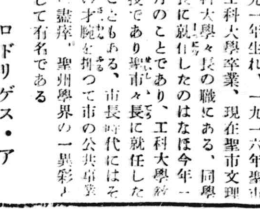 九一年生れ、一九一六年聖市
工科大學卒業、現在聖市文理
科大學々長の職にある、同學
長に就任したのはなほ今年一
月のことであり、工科大學教
授であり聖市々長に就任した
こともある、市長時代にはそ
の才腕を揮つて市の公共事業
に盡瘁。聖州學界の一異彩と
して有名である
ロドリゲス・ア